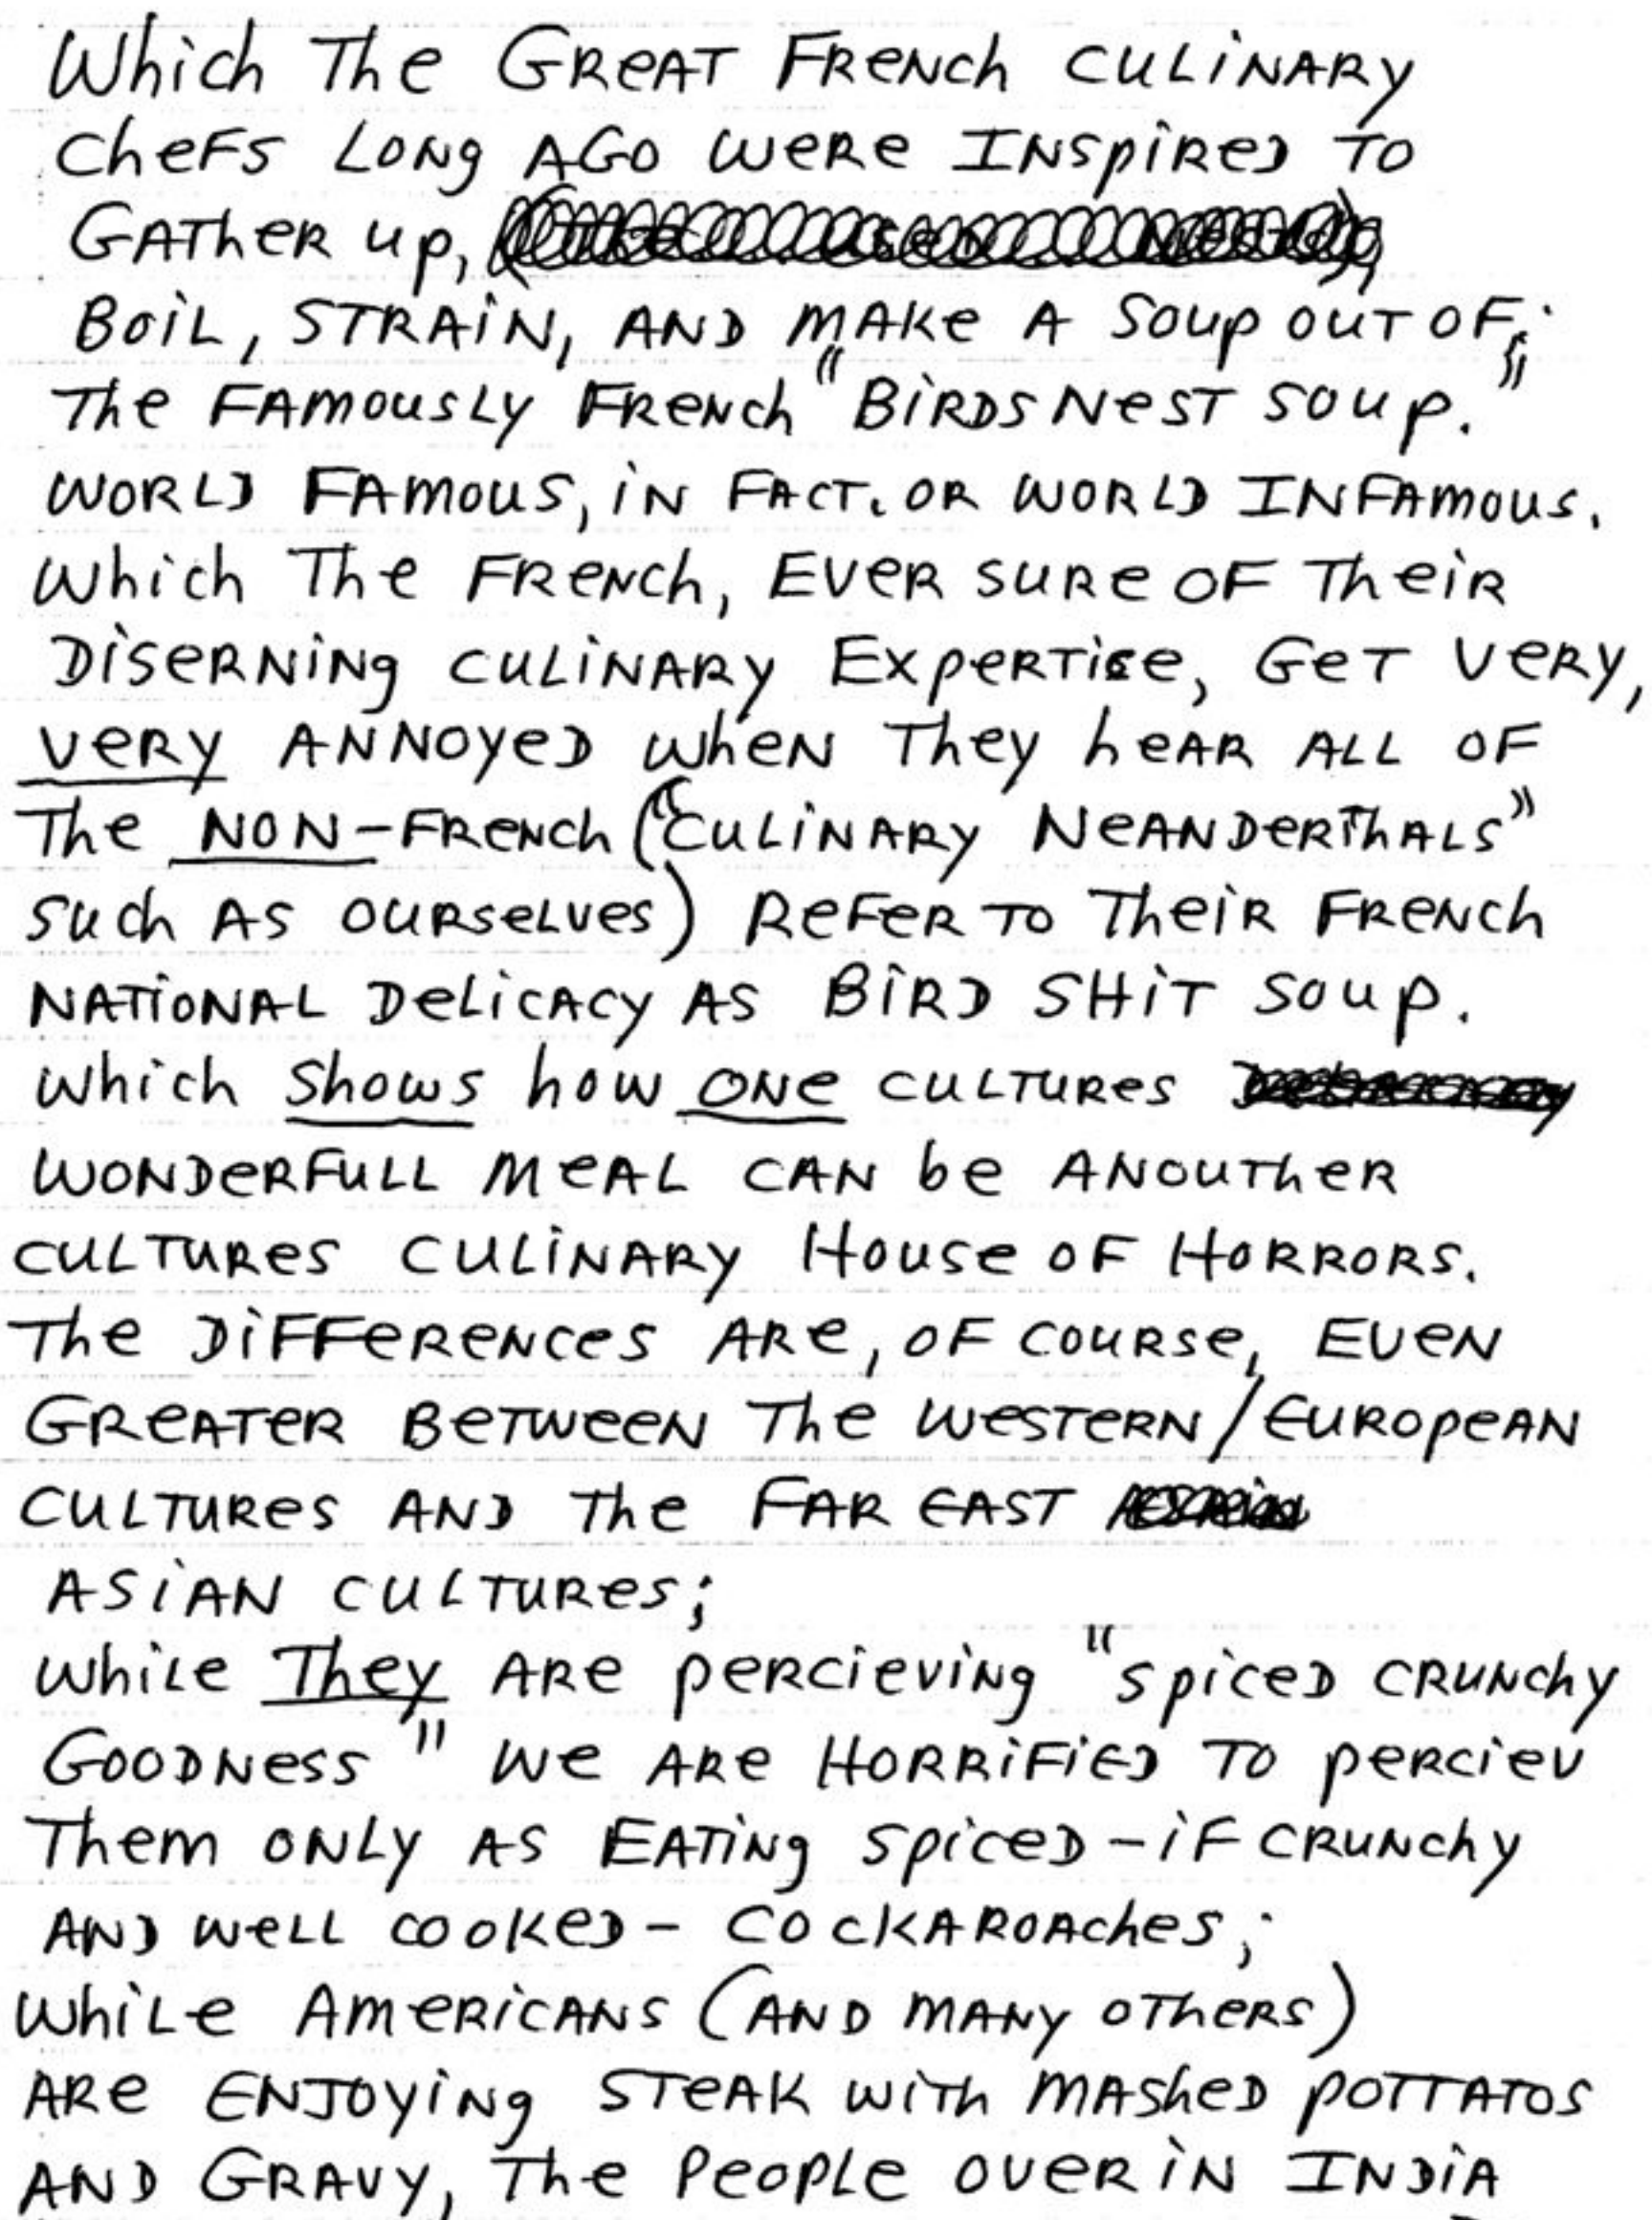 Which The GREAT FRENch CULINARY
Chefs LONg AGO WERE INSpiRED TO
GATheR up,
BoiL, STRAIN, AND MAKe A Soup OUT OF;
The FAMOUSLY FRENch "BIRDS NeST Soup."
WORLD FAMOUS, iN FACT. OR WORLD INFAMOUS.
Which The FRENch, EVER SURE OF TheiR
DiSERNiNg CULINARY ExpeRTise, GeT VeRY,
VeRY ANNOYED WheN They heAR ALL OF
The NON-FRENch ("CULINARY NeANDeRThALS"
Such AS OURSeLVes) ReFeR TO TheiR FRENch
NATIONAL DeLicACY AS BIRD SHIT Soup.
Which Shows how ONe CULTURes
WONDeRFULL MeAL CAN be ANOUTheR
CULTURes CULINARY House OF HORRORS.
The DiFFeReNces ARe, OF COURSe, EVeN
GReATeR BeTWeeN The WeSTeRN/EUROpeAN
CULTURes AND The FAR EAST
ASIAN CULTURes;
WhiLe They ARe peRcieviNg "Spiced CRUNchy
GOODNess" We ARe HORRiFieD TO peRcieV
Them ONLY AS EATiNg Spiced-iF CRUNchy
AND WeLL cooKeD- COCKAROAches;
WhiLe AmeRicANS (AND MANY OTheRS)
ARe ENJOYiNg STeAK WiTh MAsheD poTTATOS
AND GRAVY, The PeopLe OVER iN INDiA